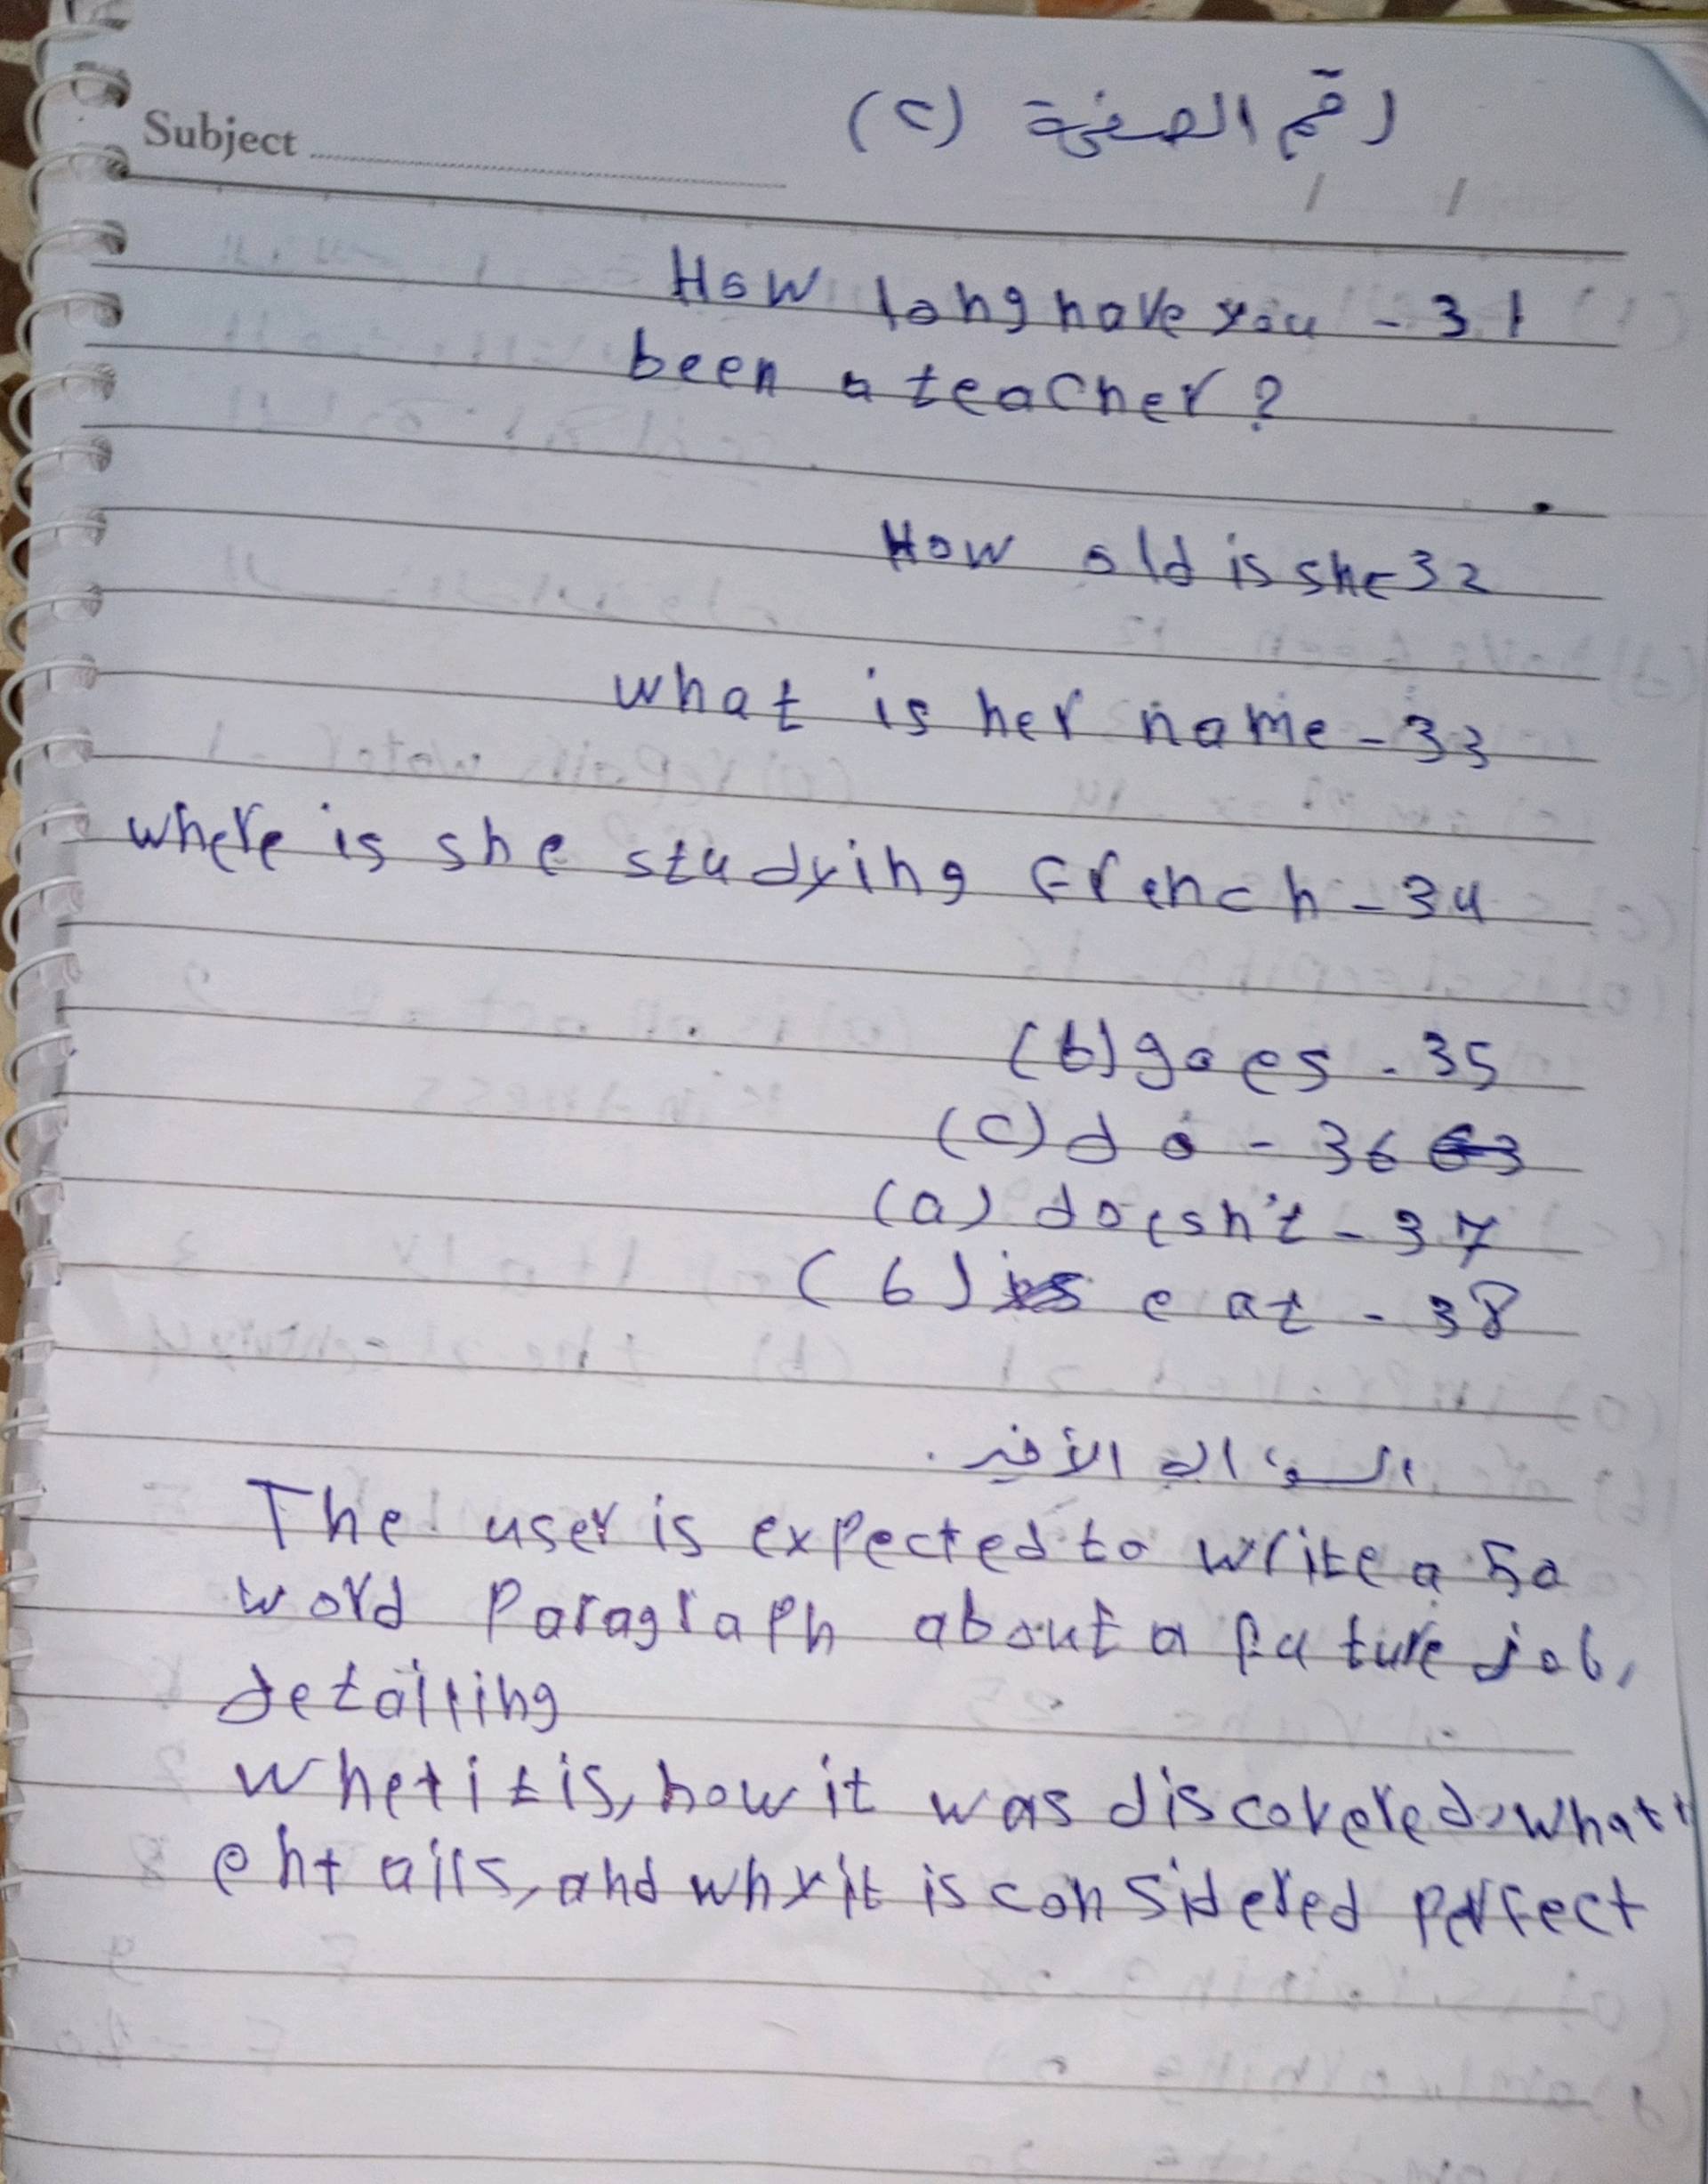 Subject
رقم الصفحة (٢)
How long have you - 31
been a teacher?
How old is she 32
what is her name - 33
where is she studying French - 34
(b) goes - 35
(c) do - 36
(a) doesn't - 37
(b) eat - 38
السؤال الأخير.
The user is expected to write a 50
word paragraph about a future job,
detailing
whet it is, how it was discovered, what it
entails, and why it is considered perfect